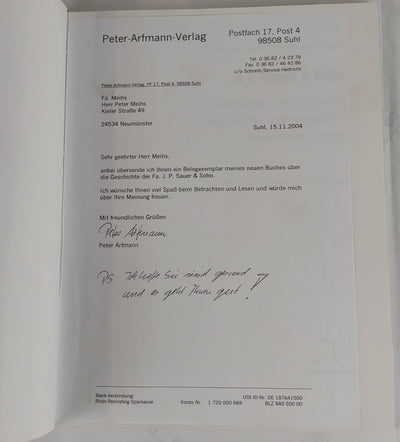 Peter-Arfmann-Verlag
Postfach 17, Post 4
98508 Suhl
Tel. 0 36 82 / 4 23 78
Fax 0 36 82 / 46 42 86
c/o Schreib-Service Helfricht
Peter-Arfmann-Verlag, PF 17, Post 4, 98508 Suhl
Fa. Meihs
Herr Peter Meihs
Kieler Straße 49
24534 Neumünster
Suhl, 15.11.2004
Sehr geehrter Herr Meihs,
anbei übersende ich Ihnen ein Belegexemplar meines neuen Buches über
die Geschichte der Fa. J. P. Sauer & Sohn.
Ich wünsche Ihnen viel Spaß beim Betrachten und Lesen und würde mich
über Ihre Meinung freuen.
Mit freundlichen Grüßen
Peter Arfmann
Peter Arfmann
PS. Ich hoffe Sie sind gesund
und es geht Ihnen gut!
Bank Verbindung:
Rhön Rennsteig-Sparkasse
Konto Nr. 1 720 000 669
USt-ID Nr. DE 187641500
BLZ 840 500 00